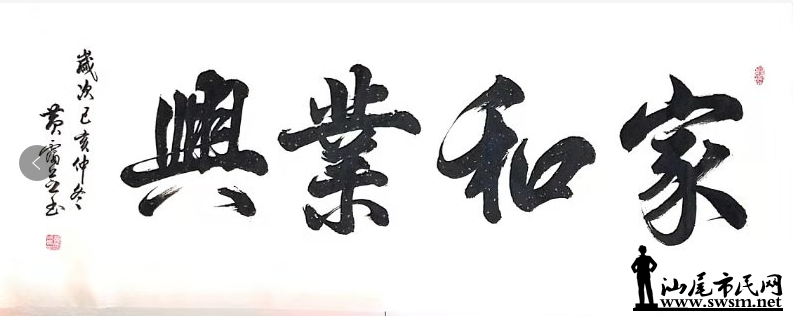 家和業興
歲次己亥仲冬
黄
汕尾市民网
www.swsm.net